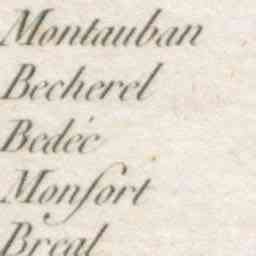 Montauban
Becherel
Bedéc
Monſort
Breal